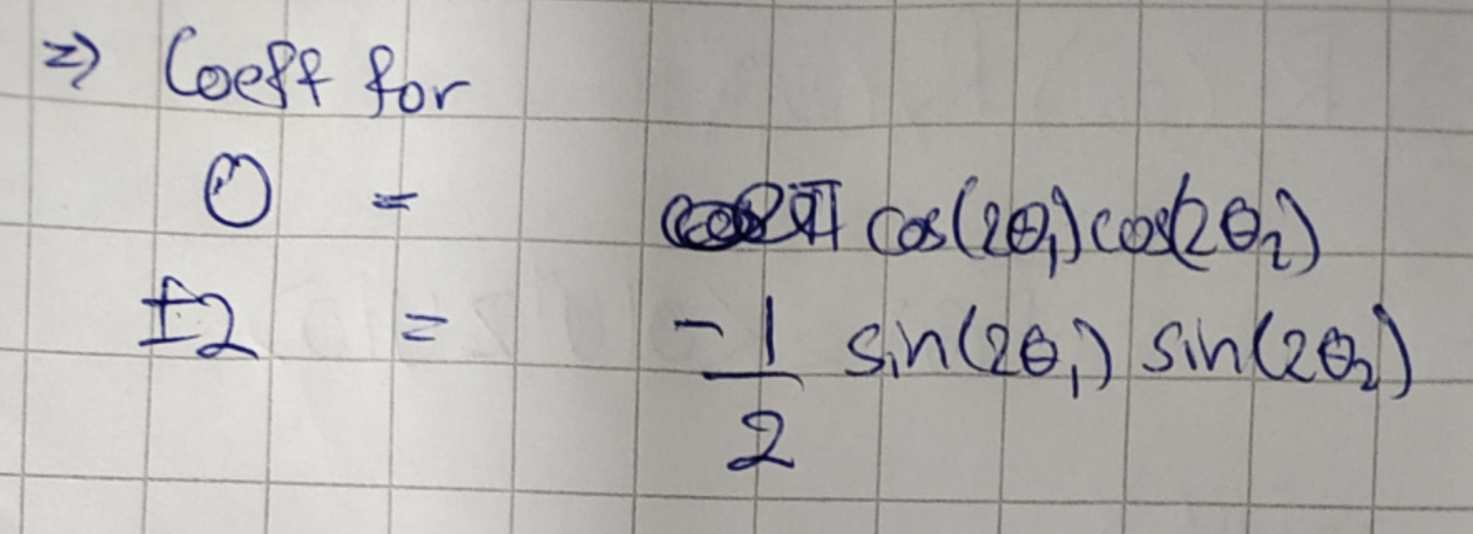 ⇒ Coeff for
0 = cos(2θ₁) cos(2θ₂)
±2 = -1/2 sin(2θ₁) sin(2θ₂)